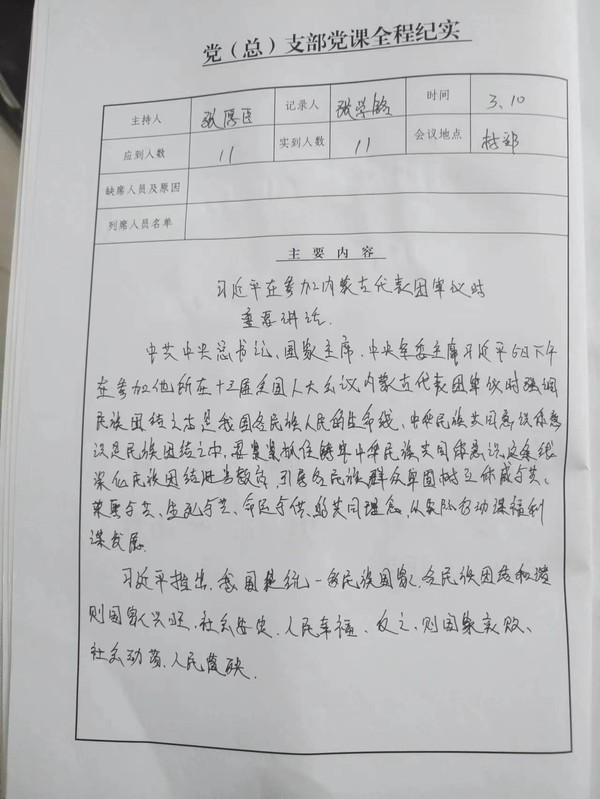 党（总）支部党课全程纪实
主持人 张厚臣 记录人 张学铭 时间 3.10
应到人数 11 实到人数 11 会议地点 村部
缺席人员及原因
列席人员名单
主要内容
习近平在参加内蒙古代表团审议时
重要讲话.
中共中央总书记、国家主席、中央军委主席习近平5日下午
在参加他所在十三届全国人大会议内蒙古代表团审议时强调
民族团结之本是我国各民族人民的生命线、中华民族共同意识体意
识是民族团结之中,要紧紧抓住铸牢中华民族共同体意识这条线
深化民族团结进步教育,引导各民族群众牢固树立休戚与共、
荣辱与共、生死与共、命运与共、的共同理念,从实际行动谋福利
谋发展.
习近平指出,我国是统一多民族国家,各民族团结和谐
则国家兴旺、社会安定、人民幸福、反之,则国家衰败、
社会动荡、人民遭殃.